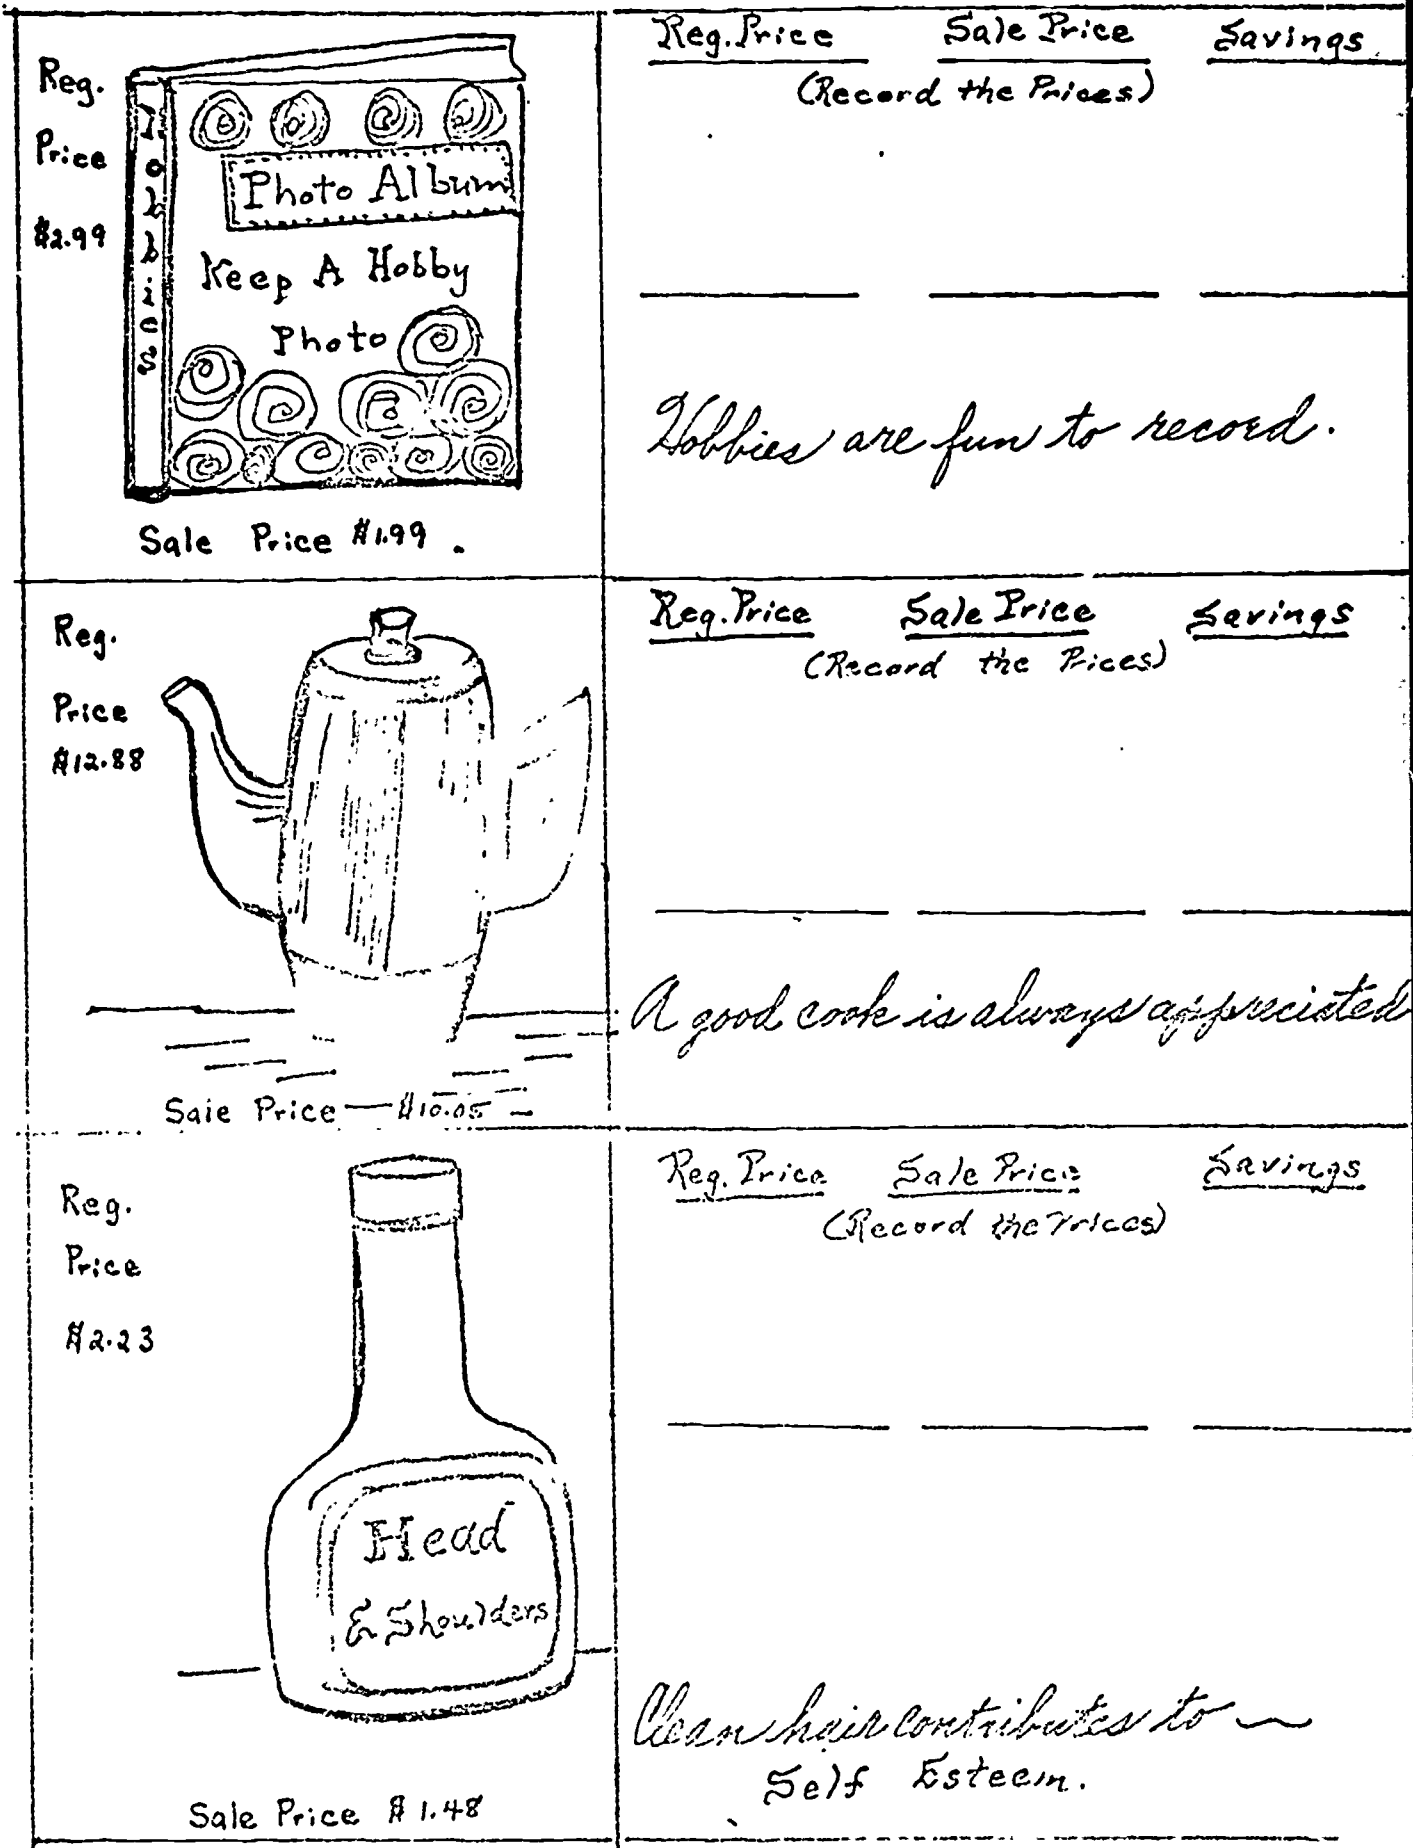 Reg.
Price
$2.99
Hobbies
Photo Album
Keep A Hobby
Photo
Sale Price $1.99.
Reg. Price Sale Price Savings
(Record the Prices)
Hobbies are fun to record.
Reg.
Price
$12.88
Sale Price $10.05
Reg. Price Sale Price Savings
(Record the Prices)
A good cook is always appreciated
Reg.
Price
$2.23
Head
& Shoulders
Sale Price $1.48
Reg. Price Sale Price Savings
(Record the Prices)
Clean hair contributes to
Self Esteem.